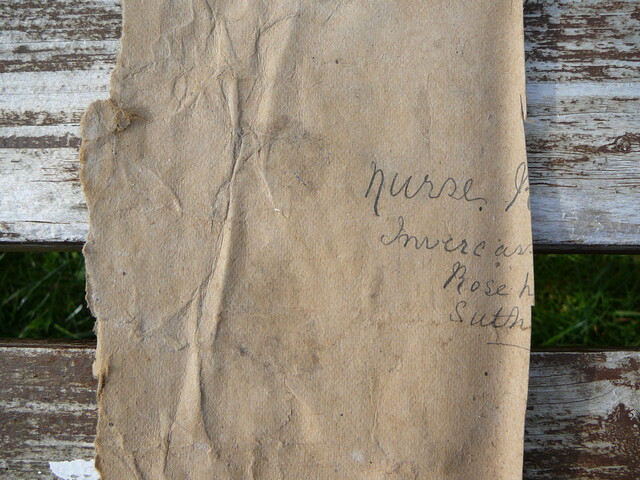 Nurse
Invercas
Rose h
Suth